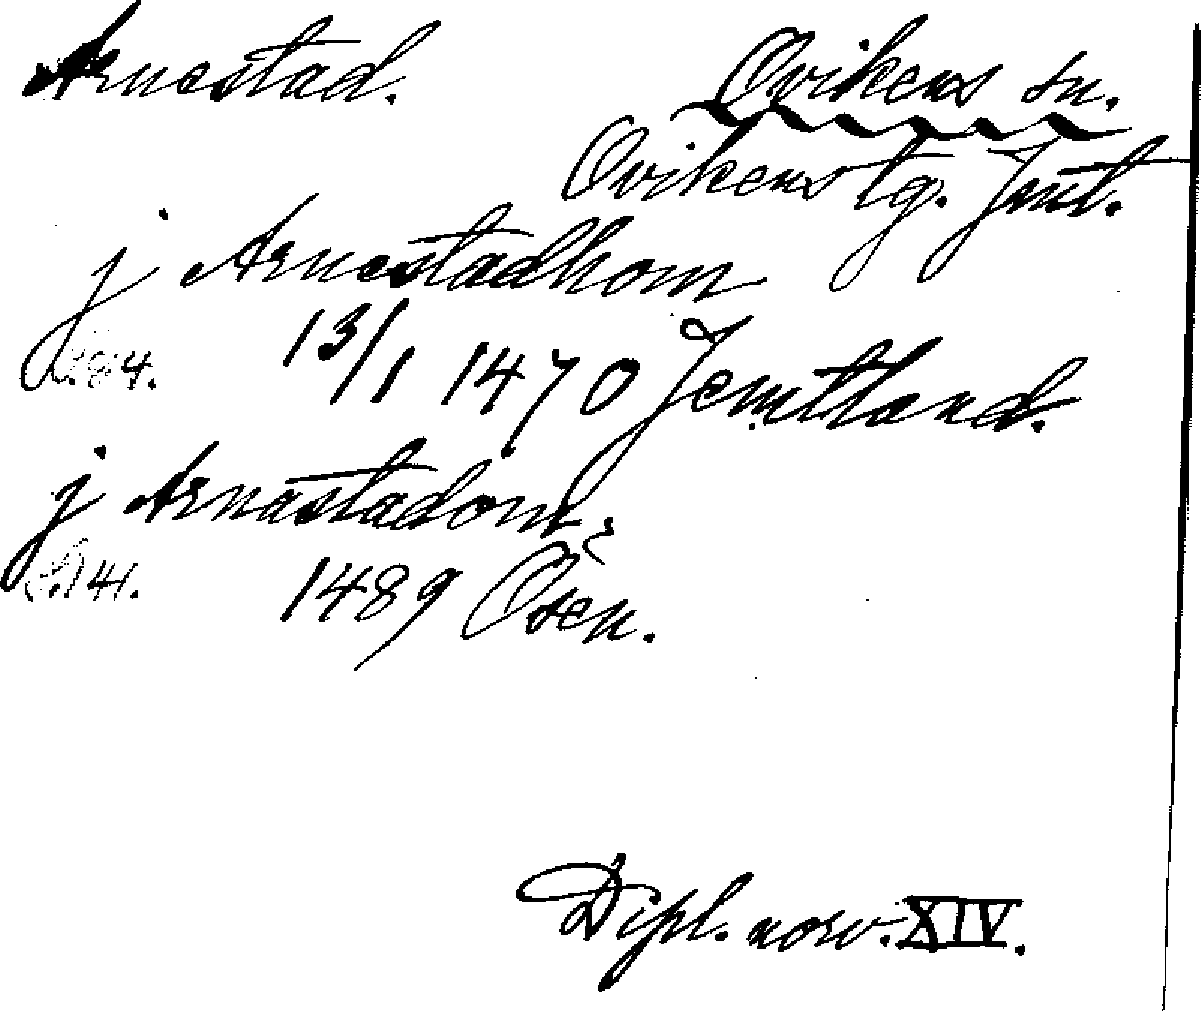 Arnestad. Ovikens sn.
Ovikens tg. Jmt.
j Arnestadhom
s. 84. 13/1 1470 Jemtland.
j Arnastadom
141. 1489 Osen.
Dipl. norv. XIV.